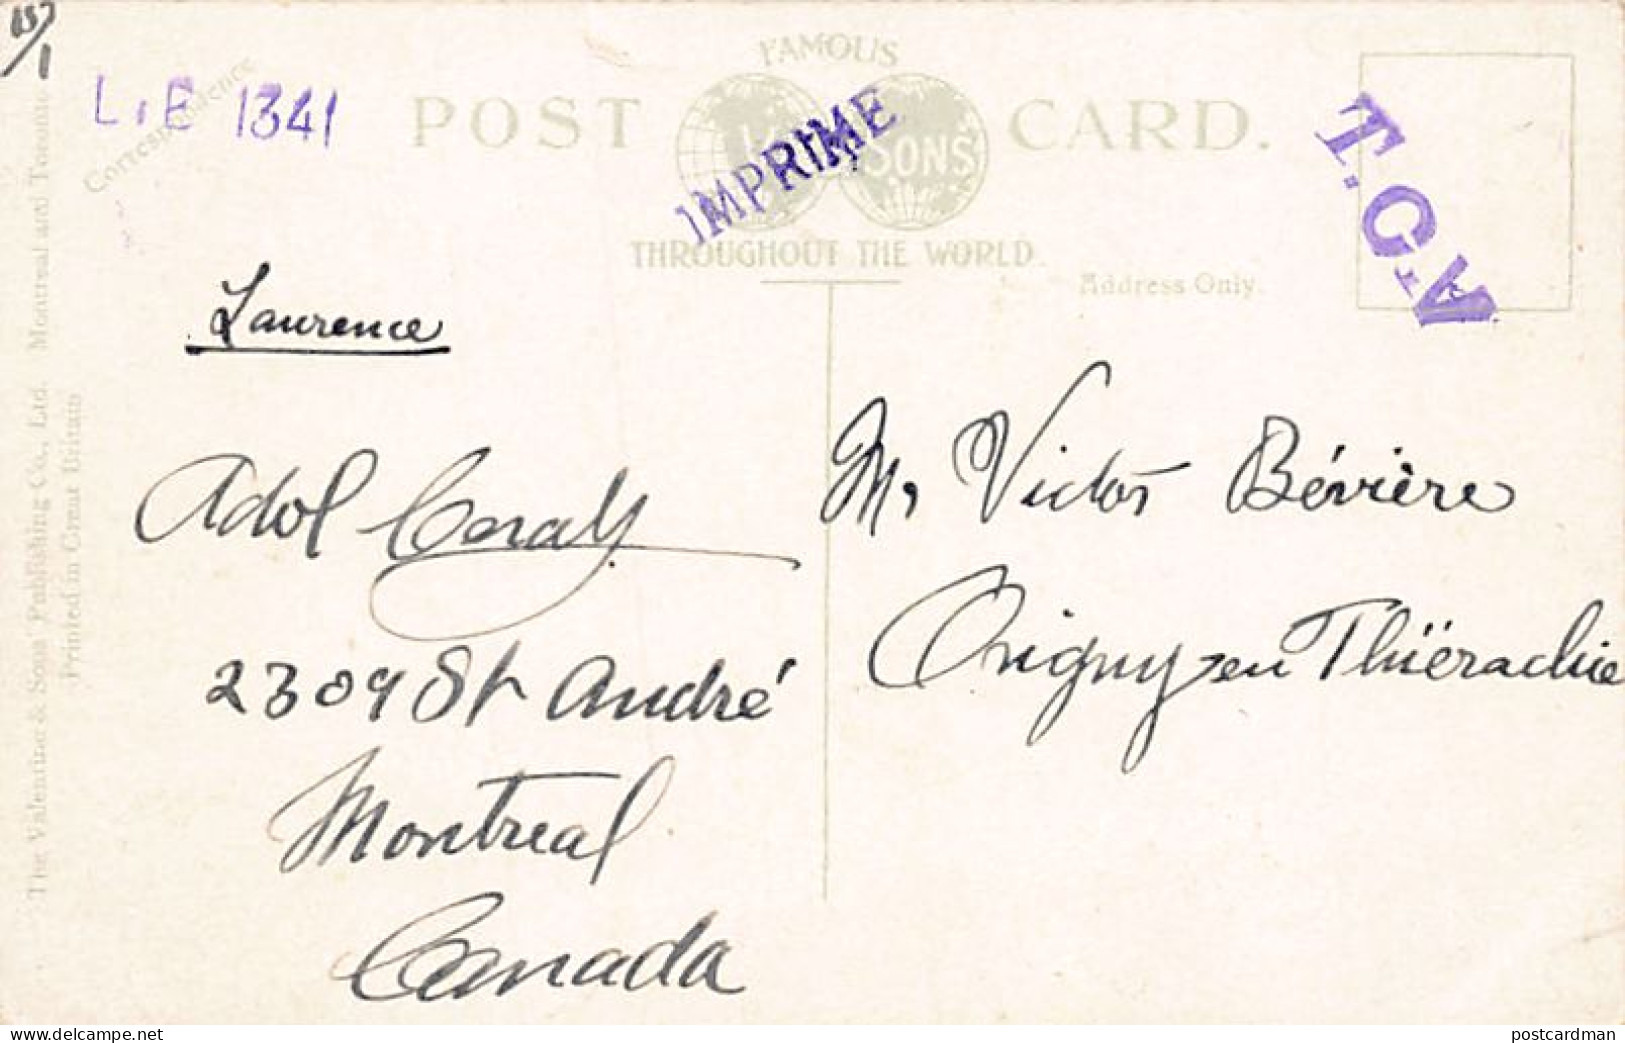 L.E 1341
Correspondence
FAMOUS
POST CARD.
SONS
IMPRIME
THROUGHOUT THE WORLD.
Address Only.
T.C.V.
Laurence
Adol
2309 St André
Montreal
Canada
Mr Victor Bévière
Origny en Thiérachie
The Valentine & Sons' Publishing Co., Ltd. Montreal and Toronto
Printed in Great Britain
www.delcampe.net
postcardman